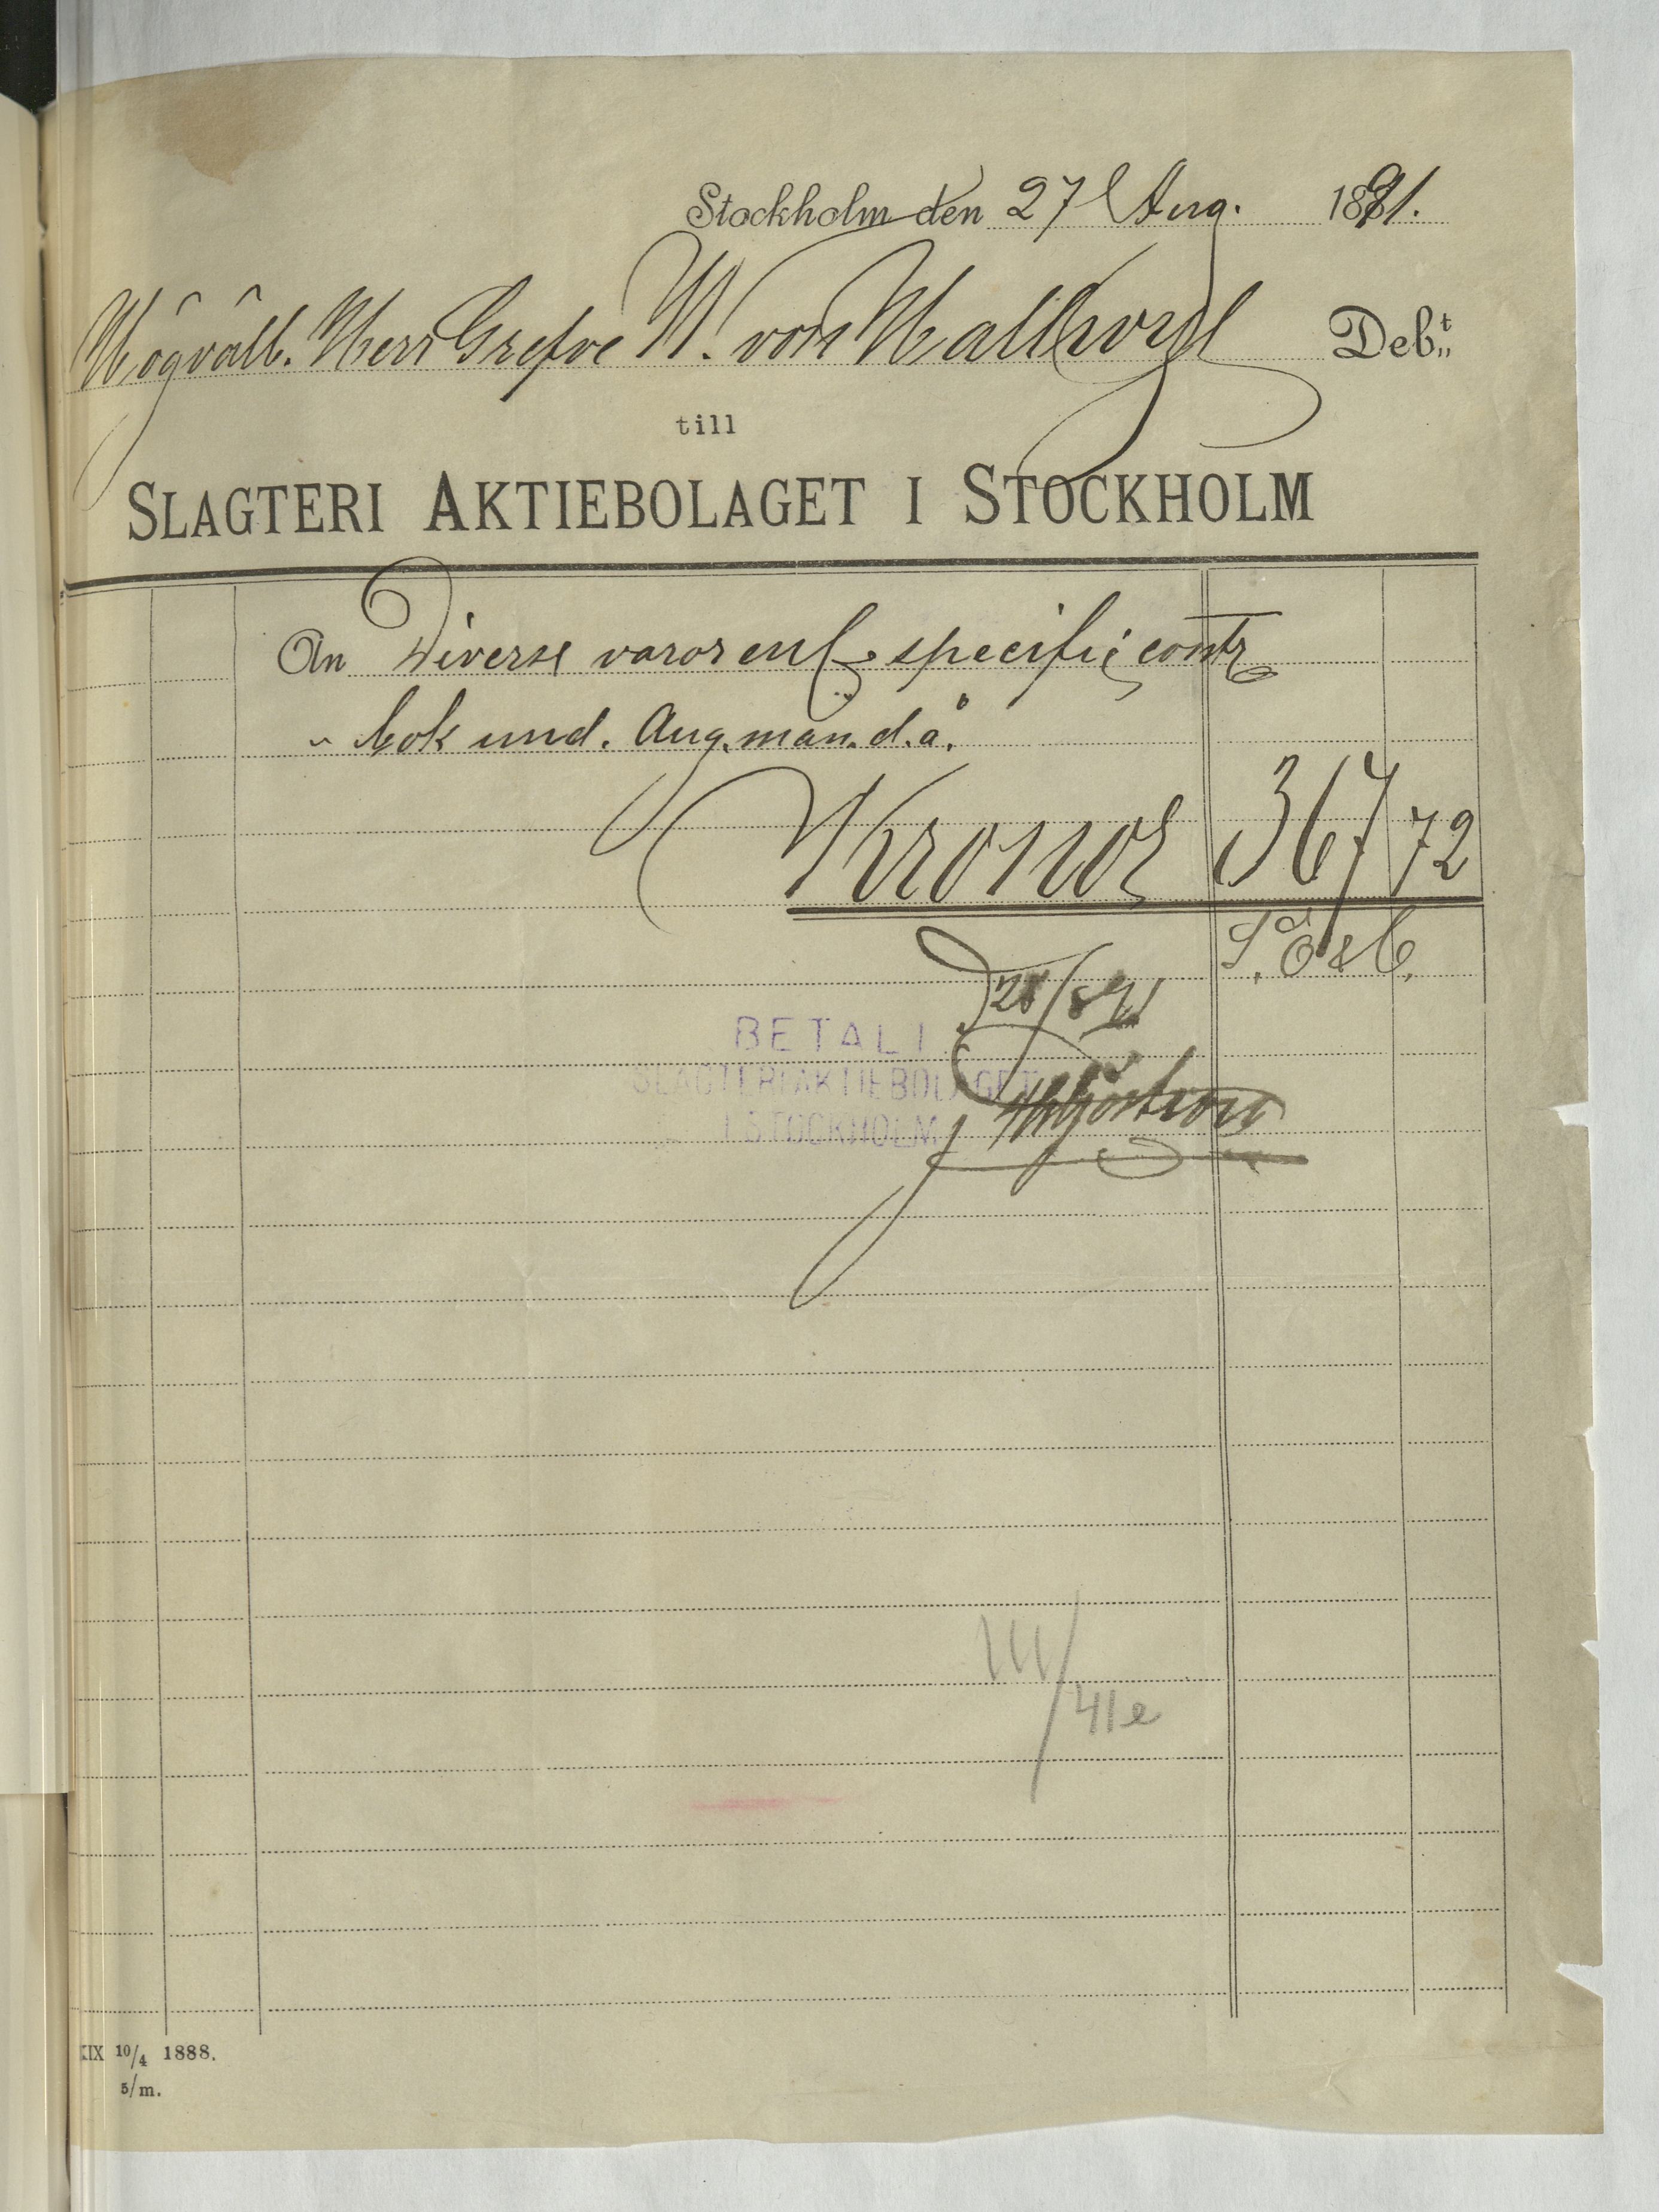 Stockholm den 27 Aug. 1891.
Högvälb. Herr Grefve W. von Hallwyl Deb:t
till
SLAGTERI AKTIEBOLAGET I STOCKHOLM
An Diverse varor enl. specific contr
" bok und. Aug. mån. d. å.
Kronor 367 72
S. Ö & C.
28/8 91
BETALT
SLAGTERI AKTIEBOLAGET
I STOCKHOLM
III/41e
XIX 10/4 1888.
5/m.